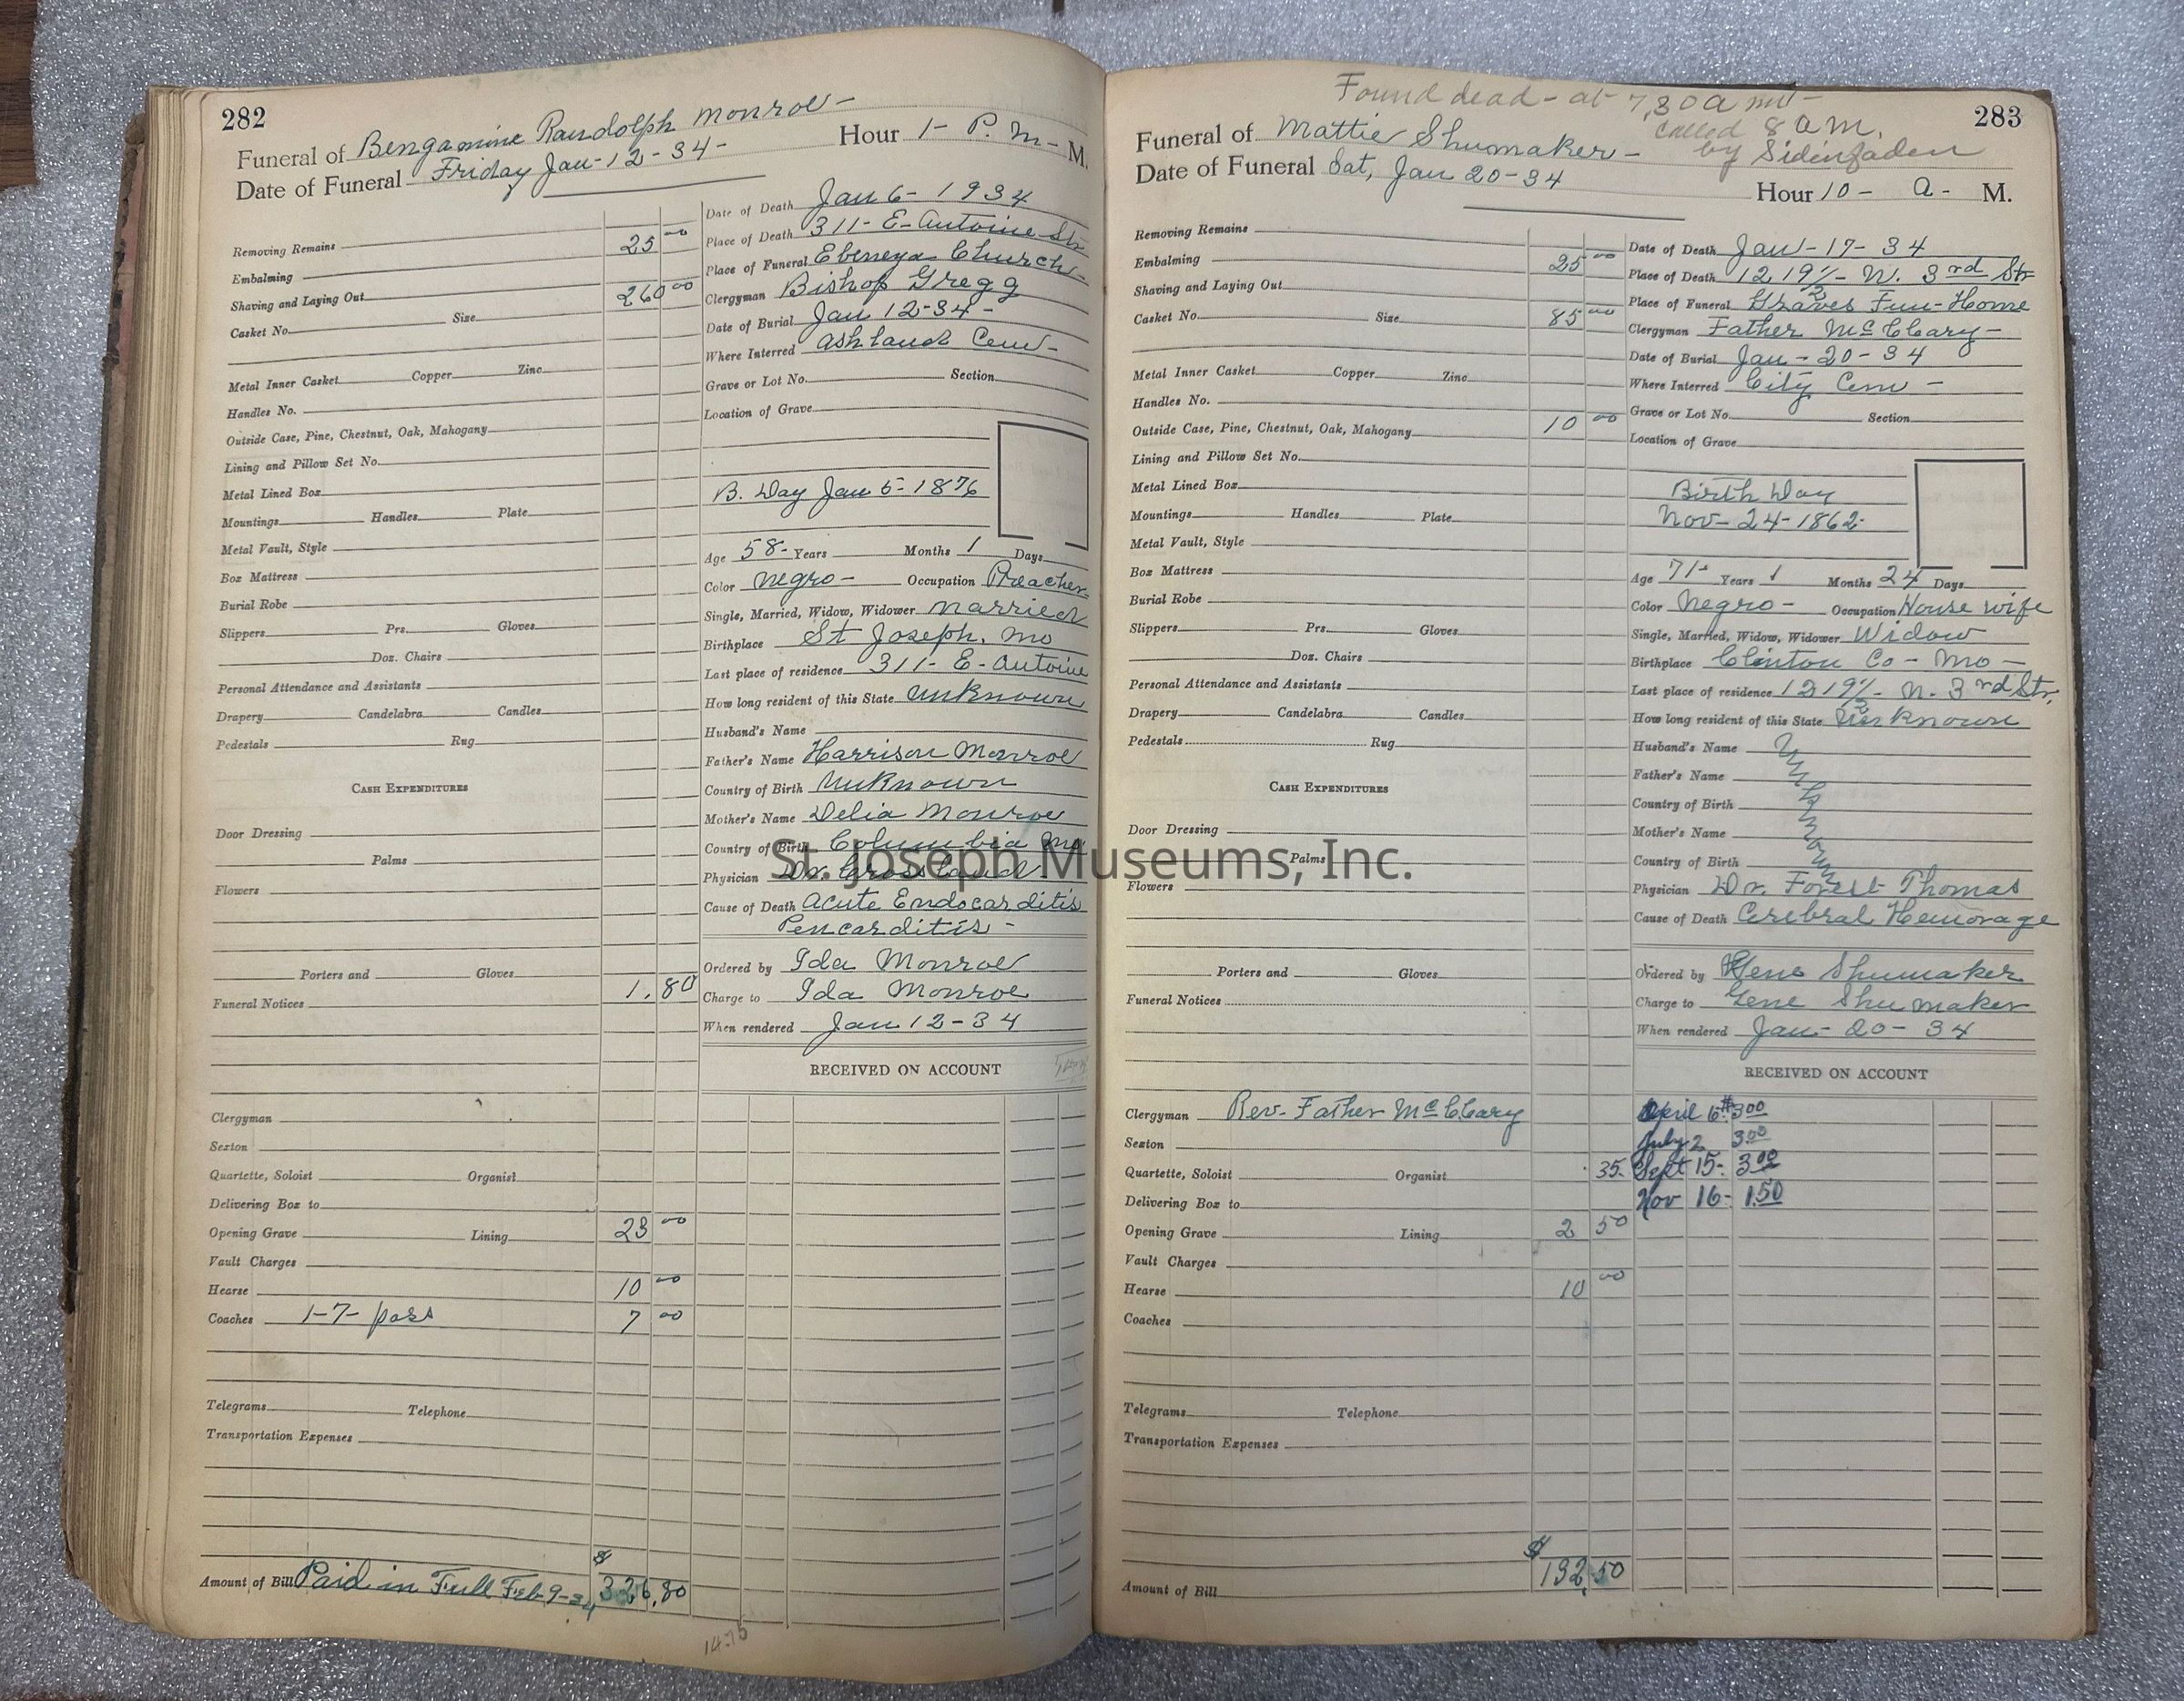 282
Funeral of Bengamine Randolph Monroe - Hour 1- P. M- M.
Date of Funeral Friday Jan-12-34-
Removing Remains
Embalming 25 00
Shaving and Laying Out
Casket No. Size 260 00
Metal Inner Casket Copper Zinc
Handles No.
Outside Case, Pine, Chestnut, Oak, Mahogany
Lining and Pillow Set No.
Metal Lined Box
Mountings Handles Plate
Metal Vault, Style
Box Mattress
Burial Robe
Slippers Prs. Gloves
Doz. Chairs
Personal Attendance and Assistants
Drapery Candelabra Candles
Pedestals Rug
CASH EXPENDITURES
Door Dressing
Palms
Flowers
Porters and Gloves
Funeral Notices 1.80
Clergyman
Sexton
Quartette, Soloist Organist
Delivering Box to
Opening Grave Lining 23 00
Vault Charges
Hearse 10 00
Coaches 1-7- pass 7 00
Telegrams Telephone
Transportation Expenses
Amount of Bill Paid in Full Feb 9-34 $326.80
Date of Death Jan 6- 1934
Place of Death 311- E- Antoine Str
Place of Funeral Church-
Clergyman Bishop Gregg
Date of Burial Jan 12-34-
Where Interred Ashland Cem-
Grave or Lot No. Section
Location of Grave
B. Day Jan 5- 1876
Age 58- Years Months 1 Days
Color negro- Occupation Preacher-
Single, Married, Widow, Widower married
Birthplace St Joseph, Mo
Last place of residence 311- E- Antoine
How long resident of this State unknown
Husband's Name
Father's Name Harrison Monroe
Country of Birth unknown
Mother's Name Delia Monroe
Country of Birth Columbia Mo
Physician Dr. Crossland
Cause of Death Acute Endocarditis
Pericarditis-
Ordered by Ida Monroe
Charge to Ida Monroe
When rendered Jan 12-34
RECEIVED ON ACCOUNT
14.75
St. Joseph Museums, Inc.
Found dead- at 7,30 a m-
283
Funeral of Mattie Shumaker- called 8 a m.
by Sidenfaden
Date of Funeral Sat, Jan 20-34 Hour 10- a- M.
Removing Remains
Embalming 25 00
Shaving and Laying Out
Casket No. Size 85 00
Metal Inner Casket Copper Zinc
Handles No.
Outside Case, Pine, Chestnut, Oak, Mahogany 10 00
Lining and Pillow Set No.
Metal Lined Box
Mountings Handles Plate
Metal Vault, Style
Box Mattress
Burial Robe
Slippers Prs. Gloves
Doz. Chairs
Personal Attendance and Assistants
Drapery Candelabra Candles
Pedestals Rug
CASH EXPENDITURES
Door Dressing
Palms
Flowers
Porters and Gloves
Funeral Notices
Clergyman Rev- Father McCleary
Sexton
Quartette, Soloist Organist .35.
Delivering Box to
Opening Grave Lining 2 50
Vault Charges
Hearse 10 00
Coaches
Telegrams Telephone
Transportation Expenses
Amount of Bill $132.50
Date of Death Jan-17-34
Place of Death 1219½- N. 3rd Str
Place of Funeral Graves Fun-Home
Clergyman Father McCleary-
Date of Burial Jan-20-34
Where Interred City Cem-
Grave or Lot No. Section
Location of Grave
Birth Day
Nov-24-1862-
Age 71- Years 1 Months 24 Days
Color Negro- Occupation House wife
Single, Married, Widow, Widower Widow
Birthplace Clinton Co- Mo-
Last place of residence 1219½- N. 3rd Str.
How long resident of this State Unknown
Husband's Name Unknown
Father's Name
Country of Birth
Mother's Name
Country of Birth
Physician Dr. Forest Thomas
Cause of Death Cerebral Hemorage
Ordered by Gene Shumaker
Charge to Gene Shumaker
When rendered Jan-20-34
RECEIVED ON ACCOUNT
April 6- $3 00
July 2 3 00
Sept 15- 3 00
Nov 16- 1.50